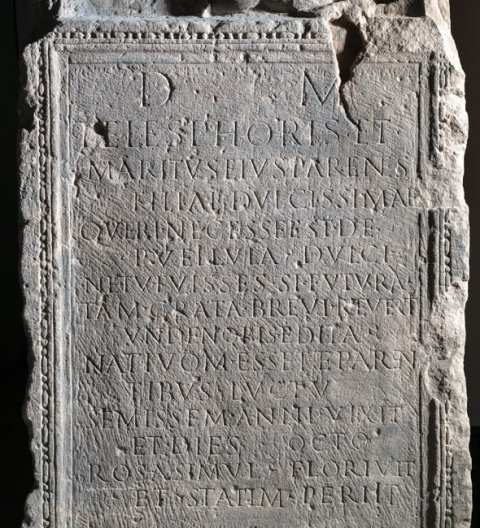 D · M
TELESPHORIS · ET
MARITVS EIVS PARENS
FILIAE · DVLCISSIMAE
QVERI NECESSE EST DE
PVELLVLA · DVLCI
NE TV FVISSES · SI FVTVRA
TAM GRATA · BREVI REVERTI
VNDE NOBIS EDITA
NATIVOM ESSET ET PAREN
TIBVS LVCTV
SEMISSEM ANNI VIXIT
ET DIES OCTO
ROSA SIMVL · FLORIVIT
ET STATIM · PERIIT